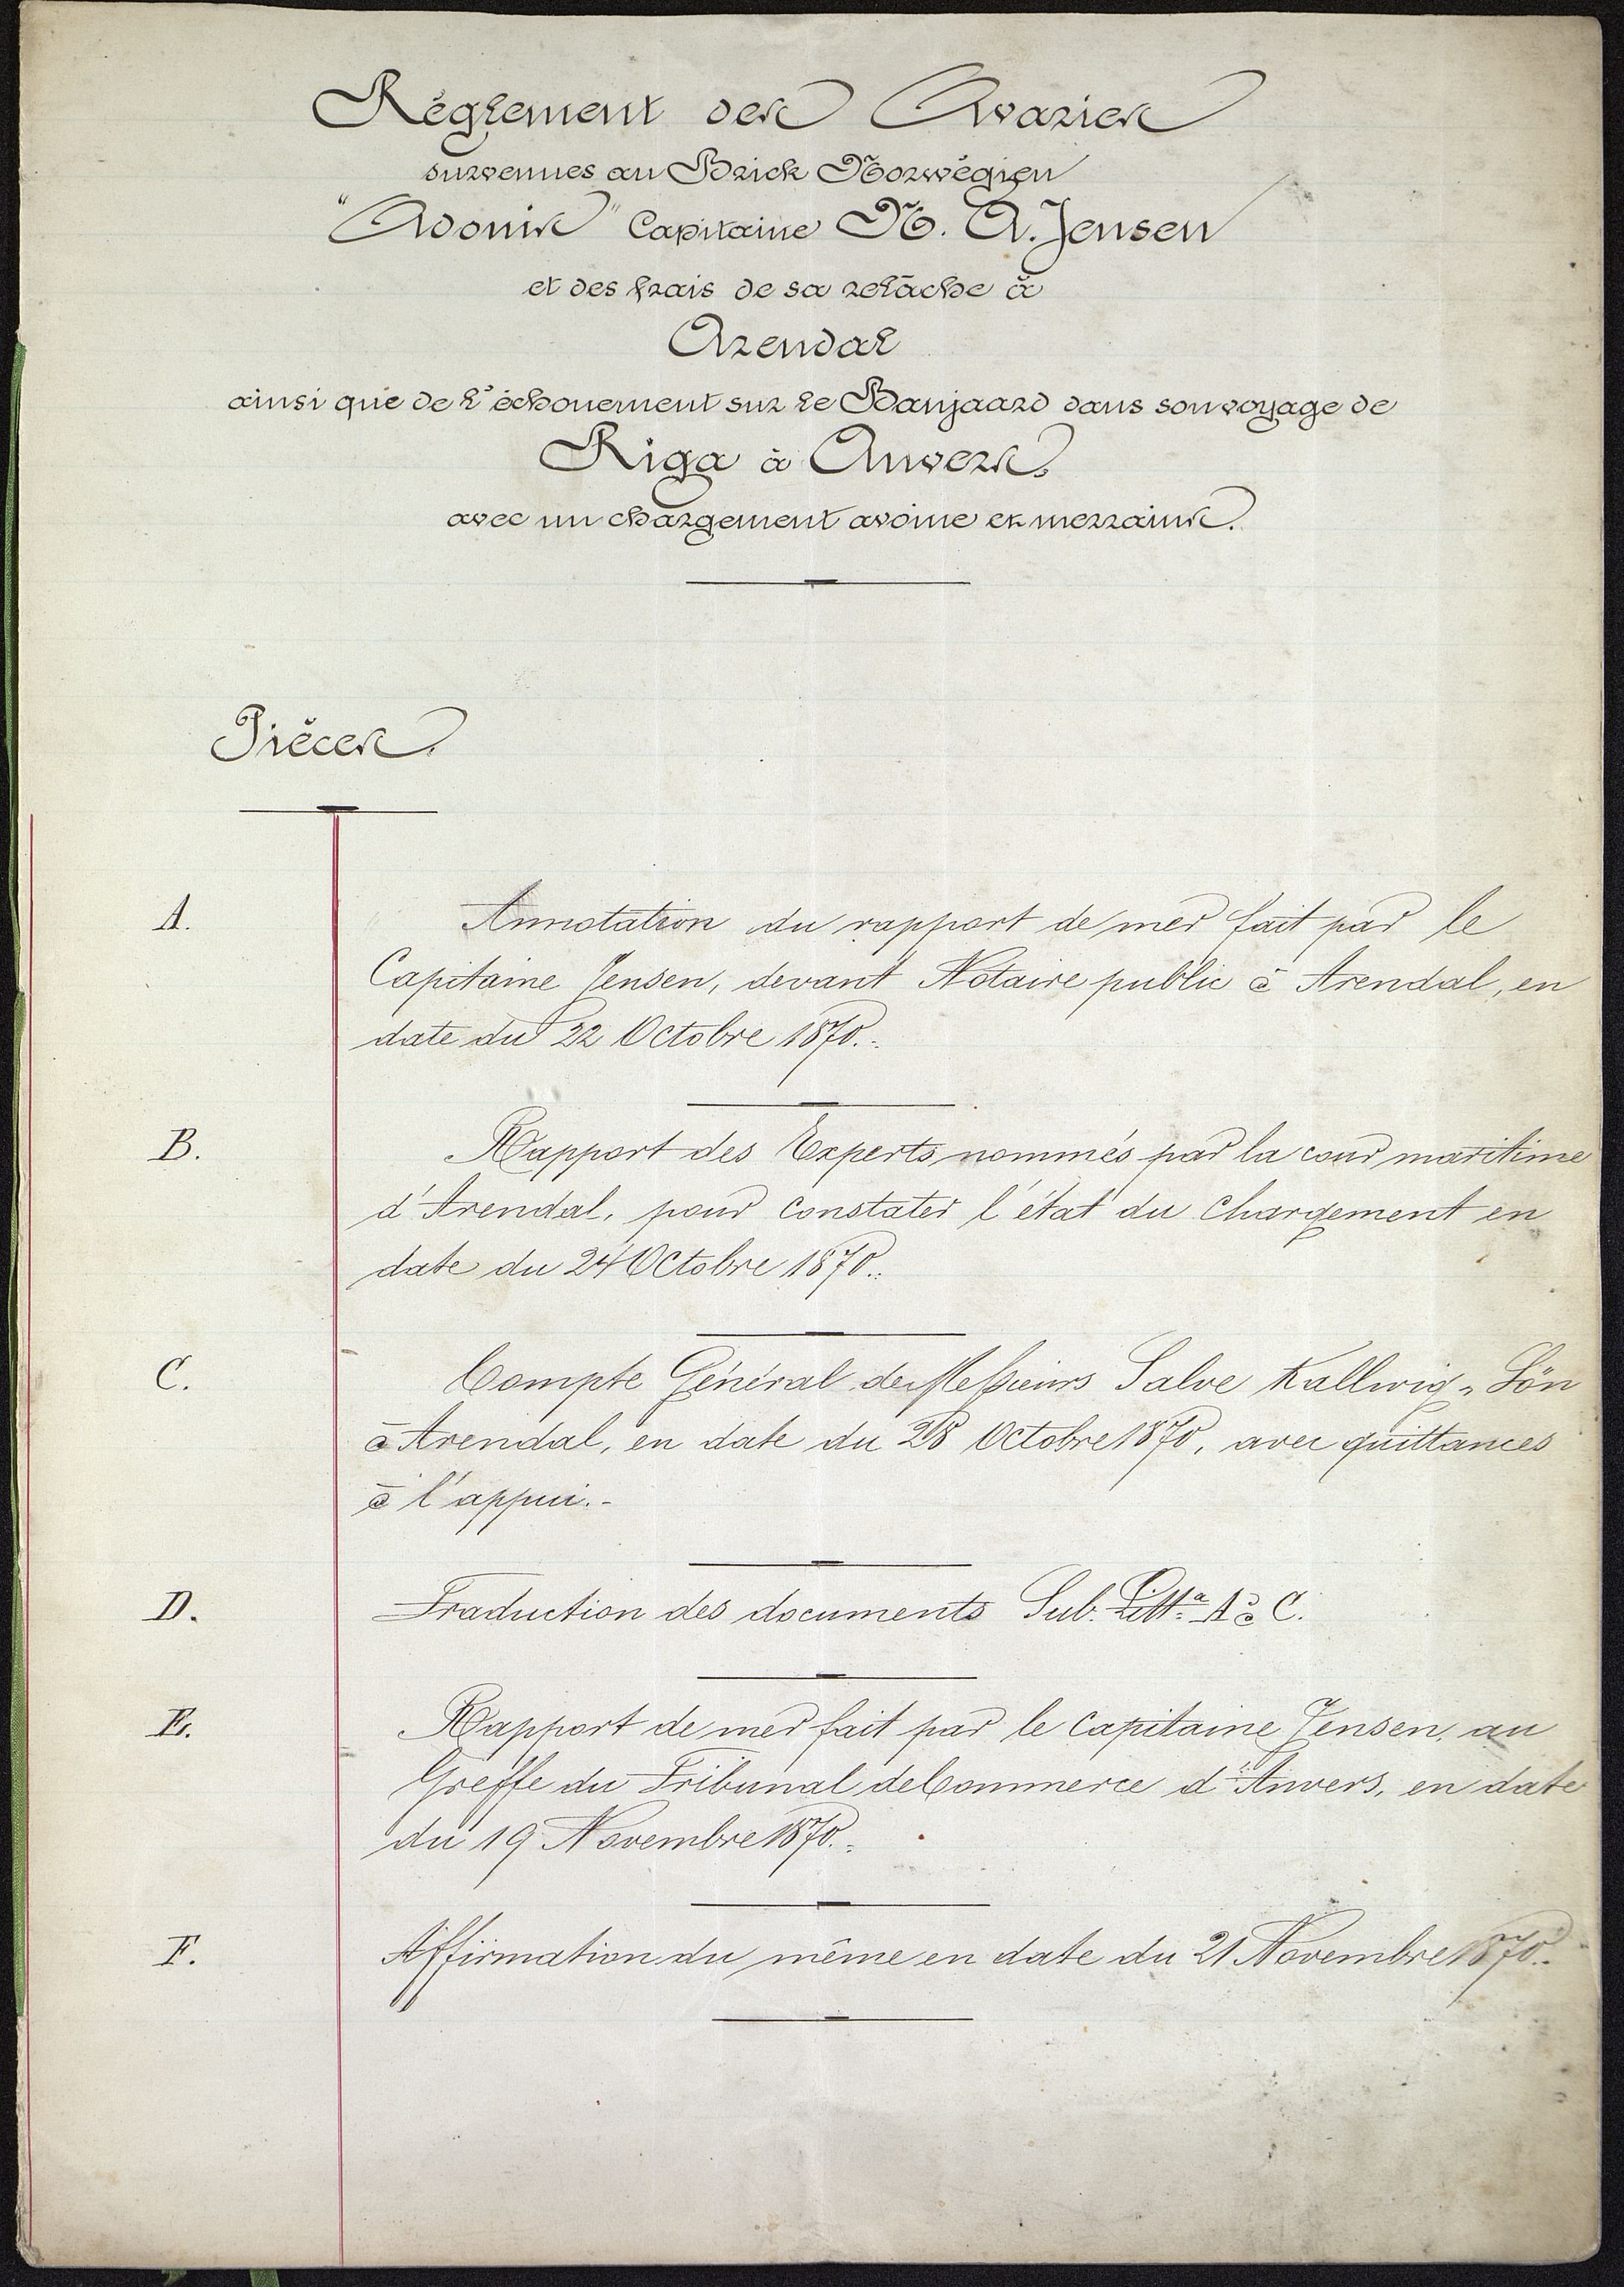 Règlement des Avaries
survenues au Brick Norwégien
"Adonis" Capitaine N. A. Jensen
et des frais de sa relâche à
Arendal
ainsi que de l'échouement sur le Banjaard dans son voyage de
Riga à Anvers,
avec un chargement avoine et merrains.
Pièces.
A. Annotation du rapport de mer fait par le
Capitaine Jensen, devant Notaire public à Arendal, en
date du 22 Octobre 1870.
B. Rapport des Experts nommés par la cour maritime
d'Arendal, pour constater l'état du chargement en
date du 24 Octobre 1870.
C. Compte Général de Messieurs Salve Kallwig & Sön
à Arendal, en date du 28 Octobre 1870, avec quittances
à l'appui.-
D. Traduction des documents Sub. Litta A à C.
E. Rapport de mer fait par le Capitaine Jensen, au
Greffe du Tribunal de Commerce d'Anvers, en date
du 19 Novembre 1870.
F. Affirmation du même en date du 21 Novembre 1870.